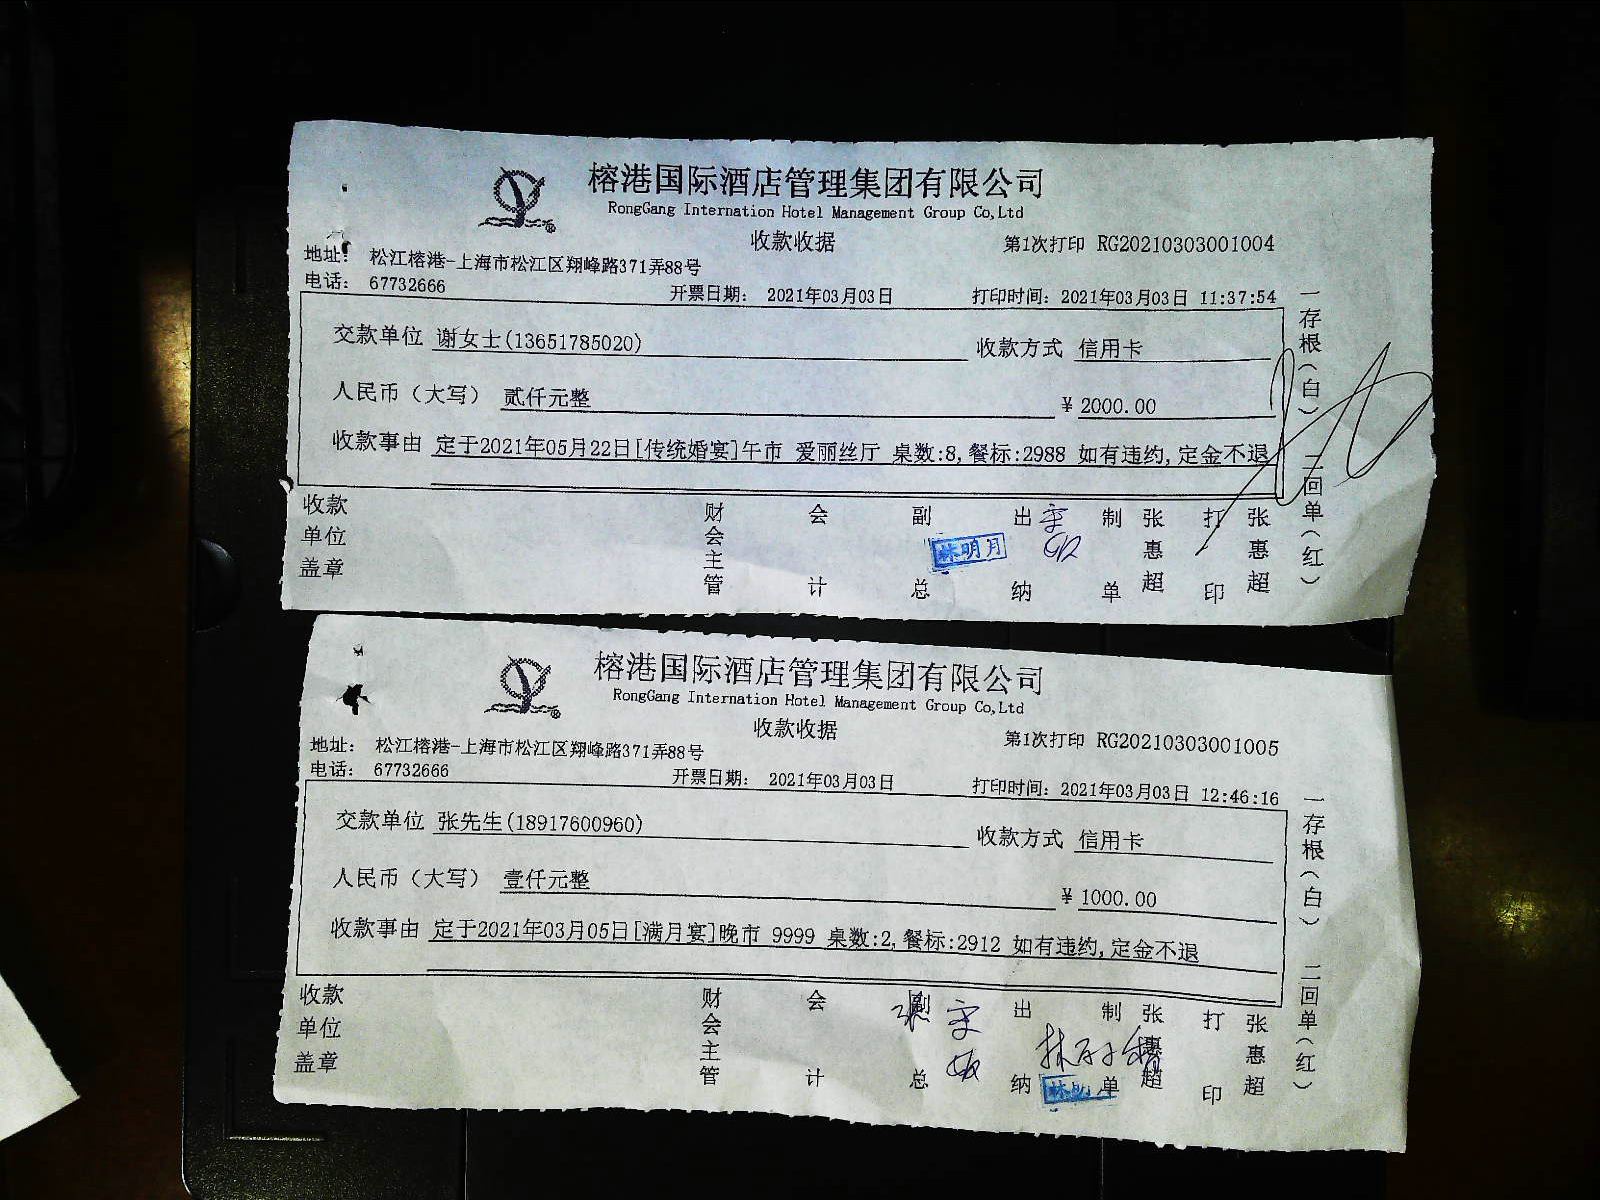 榕港国际酒店管理集团有限公司
RongGang Internation Hotel Management Group Co,Ltd
收款收据 第1次打印 RG20210303001004
地址： 松江榕港-上海市松江区翔峰路371弄88号
电话： 67732666 开票日期： 2021年03月03日 打印时间：2021年03月03日 11:37:54
交款单位 谢女士(13651785020) 收款方式 信用卡
人民币（大写） 贰仟元整 ¥ 2000.00
收款事由 定于2021年05月22日[传统婚宴]午市 爱丽丝厅 桌数:8,餐标:2988 如有违约,定金不退
一存根（白） 二回单（红）
收款单位盖章 财会主管 会计 副总 林明月 出纳 制单 张惠超 打印 张惠超
榕港国际酒店管理集团有限公司
RongGang Internation Hotel Management Group Co,Ltd
收款收据 第1次打印 RG20210303001005
地址： 松江榕港-上海市松江区翔峰路371弄88号
电话： 67732666 开票日期： 2021年03月03日 打印时间：2021年03月03日 12:46:16
交款单位 张先生(18917600960) 收款方式 信用卡
人民币（大写） 壹仟元整 ¥ 1000.00
收款事由 定于2021年03月05日[满月宴]晚市 9999 桌数:2,餐标:2912 如有违约,定金不退
一存根（白） 二回单（红）
收款单位盖章 财会主管 会计 副总 出纳 制单 张惠超 打印 张惠超